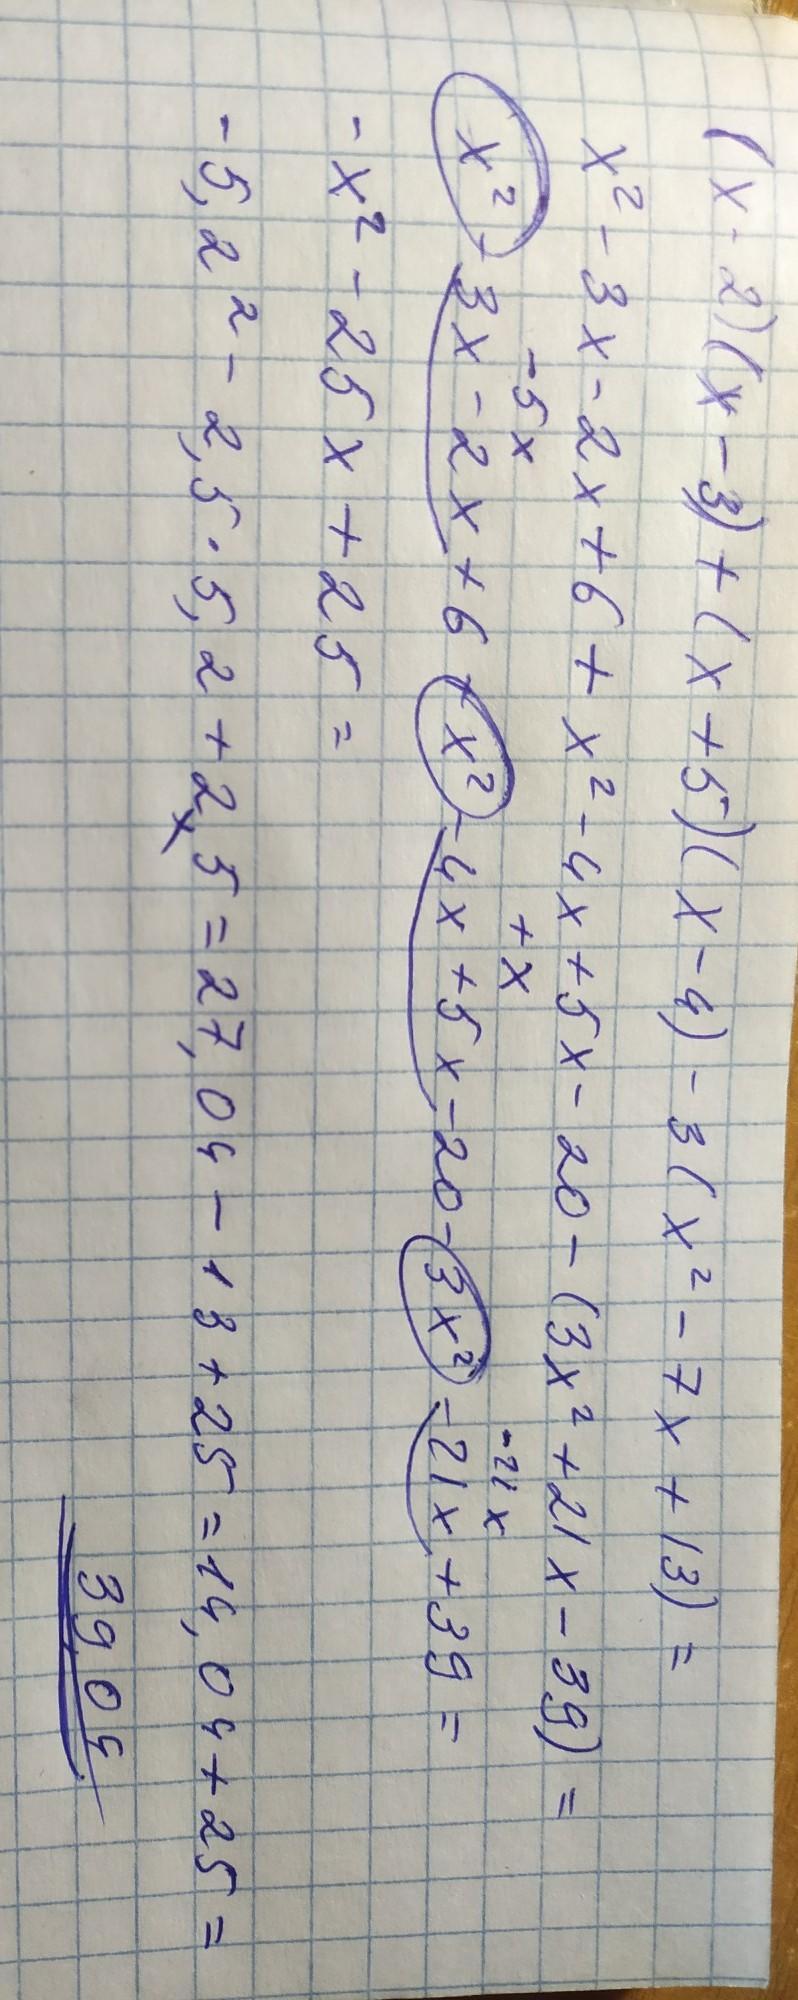 (x-2)(x-3)+(x+5)(x-4)-3(x²-7x+13)=
x²-3x-2x+6+x²-4x+5x-20-(3x²+21x-39)=
-5x +x -21x
x²-3x-2x+6+x²-4x+5x-20-3x²-21x+39=
-x²-25x+25=
-5,2²-2,5·5,2+2,5=27,04-13+25=14,04+25=
39,04